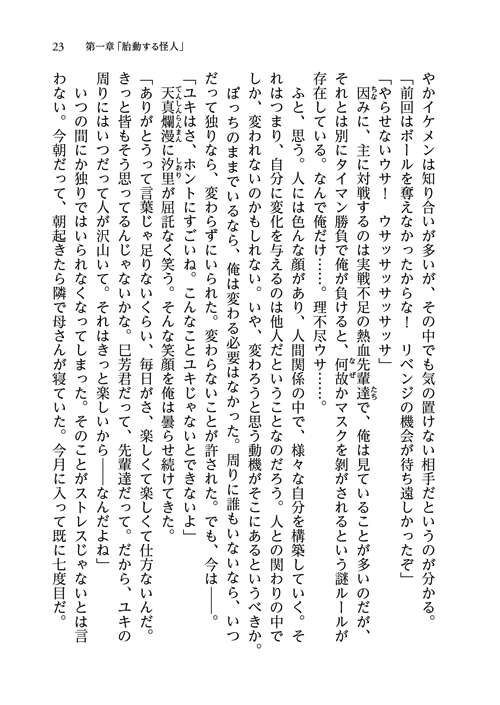 23　第一章「胎動する怪人」
やかイケメンは知り合いが多いが、その中でも気の置けない相手だというのが分かる。
「前回はボールを奪えなかったからな！　リベンジの機会が待ち遠しかったぞ」
「やらせないウサ！　ウサッサッサッサッサ」
因みに、主に対戦するのは実戦不足の熱血先輩達で、俺は見ていることが多いのだが、
それとは別にタイマン勝負で俺が負けると、何故かマスクを剝がされるという謎ルールが
存在している。なんで俺だけ……。理不尽ウサ……。
ふと、思う。人には色んな顔があり、人間関係の中で、様々な自分を構築していく。そ
れはつまり、自分に変化を与えるのは他人だということなのだろう。人との関わりの中で
しか、変われないのかもしれない。いや、変わろうと思う動機がそこにあるというべきか。
ぼっちのままでいるなら、俺は変わる必要はなかった。周りに誰もいないなら、いつ
だって独りなら、変わらずにいられた。変わらないことが許された。でも、今は――。
「ユキはさ、ホントにすごいね。こんなことユキじゃないとできないよ」
天真爛漫に汐里が屈託なく笑う。そんな笑顔を俺は曇らせ続けてきた。
「ありがとうって言葉じゃ足りないくらい、毎日がさ、楽しくて楽しくて仕方ないんだ。
きっと皆もそう思ってるんじゃないかな。巳芳君だって、先輩達だって。だから、ユキの
周りにはいつだって人が沢山いて。それはきっと楽しいから――なんだよね」
いつの間にか独りではいられなくなってしまった。そのことがストレスじゃないとは言
わない。今朝だって、朝起きたら隣で母さんが寝ていた。今月に入って既に七度目だ。